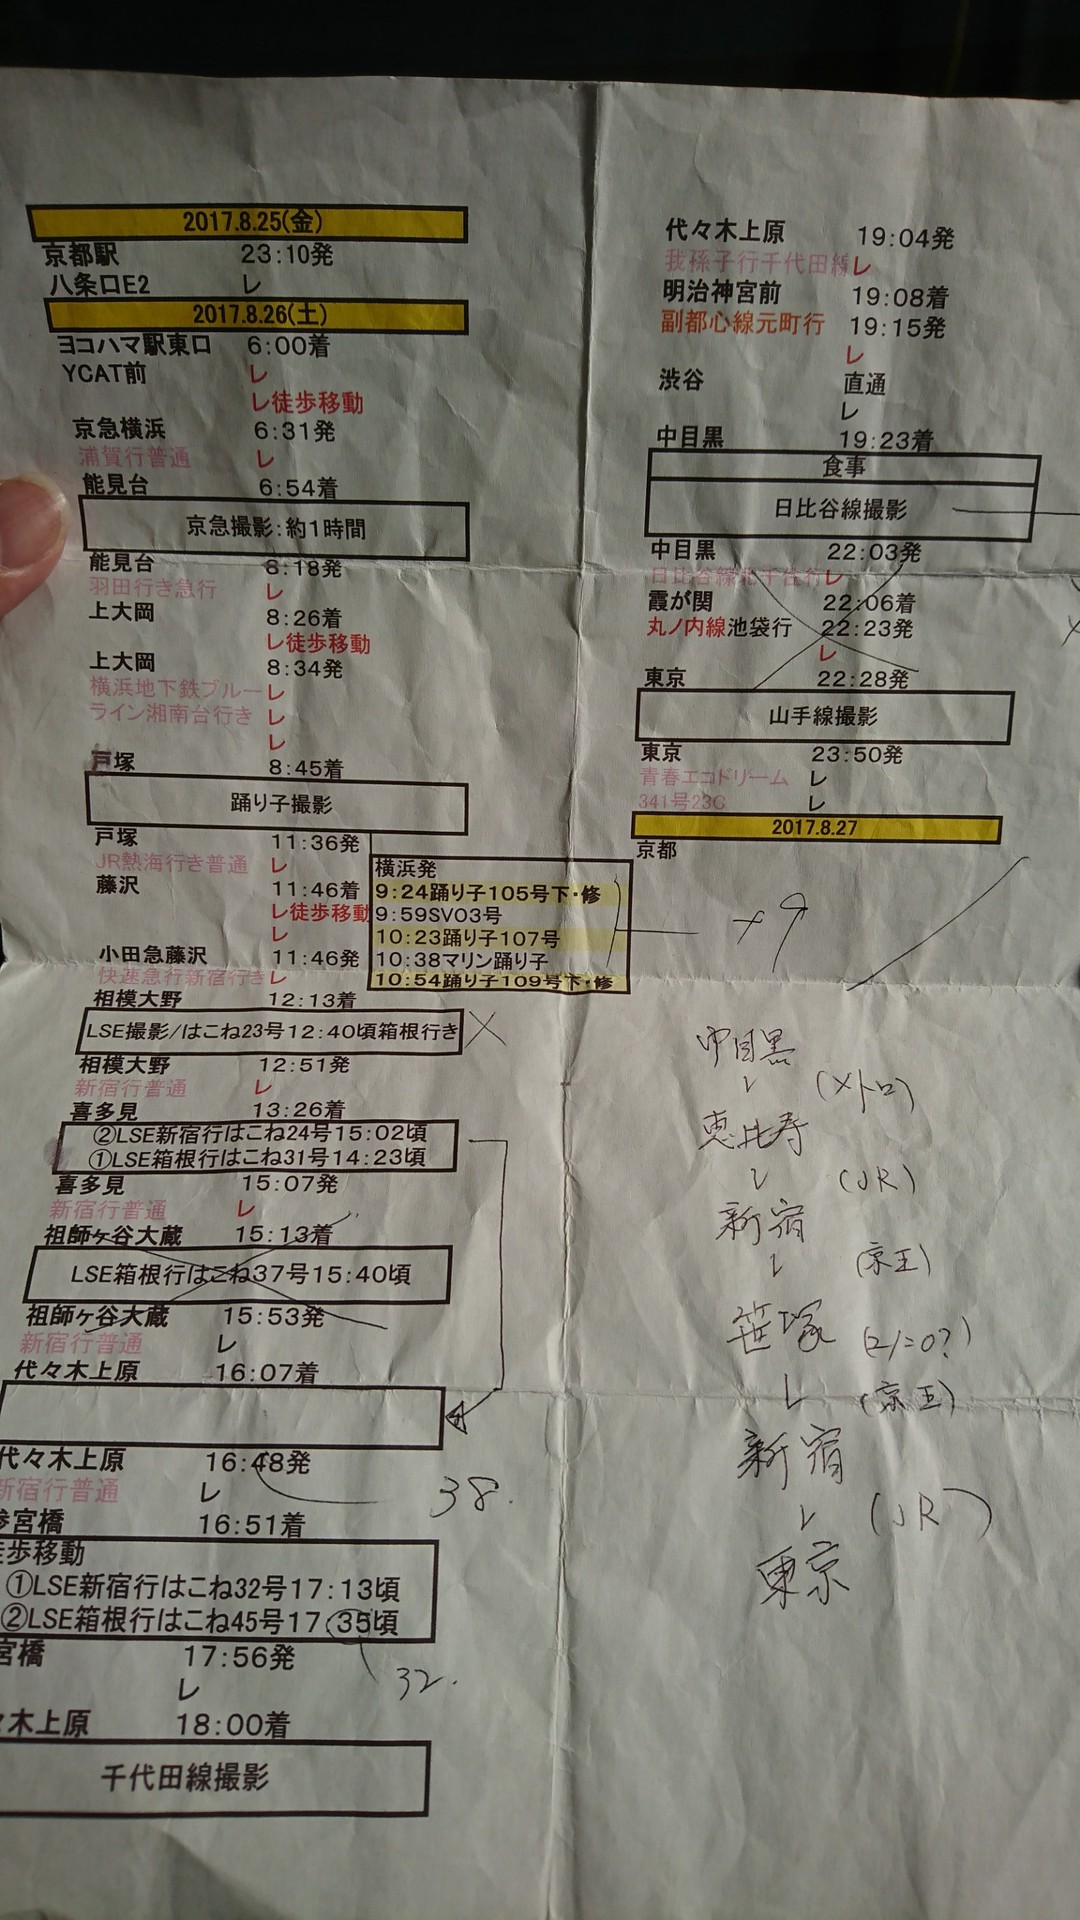 2017.8.25(金)
京都駅 23:10発
八条口E2 レ
2017.8.26(土)
ヨコハマ駅東口 6:00着
YCAT前 レ
レ徒歩移動
京急横浜 6:31発
浦賀行普通 レ
能見台 6:54着
京急撮影:約1時間
能見台 8:18発
羽田行き急行 レ
上大岡 8:26着
レ徒歩移動
上大岡 8:34発
横浜地下鉄ブルー レ
ライン湘南台行き レ
レ
戸塚 8:45着
踊り子撮影
戸塚 11:36発
JR熱海行き普通 レ
藤沢 11:46着
レ徒歩移動
レ
小田急藤沢 11:46発
快速急行新宿行き レ
相模大野 12:13着
LSE撮影/はこね23号12:40頃箱根行き
相模大野 12:51発
新宿行普通 レ
喜多見 13:26着
②LSE新宿行はこね24号15:02頃
①LSE箱根行はこね31号14:23頃
喜多見 15:07発
新宿行普通 レ
祖師ヶ谷大蔵 15:13着
LSE箱根行はこね37号15:40頃
祖師ヶ谷大蔵 15:53発
新宿行普通 レ
代々木上原 16:07着
代々木上原 16:48発
38.
新宿行普通 レ
参宮橋 16:51着
徒歩移動
①LSE新宿行はこね32号17:13頃
②LSE箱根行はこね45号17:35頃
32.
宮橋 17:56発
レ
々木上原 18:00着
千代田線撮影
横浜発
9:24踊り子105号下・修
9:59SVO3号
10:23踊り子107号
10:38マリン踊り子
10:54踊り子109号下・修
代々木上原 19:04発
我孫子行千代田線 レ
明治神宮前 19:08着
副都心線元町行 19:15発
レ
渋谷 直通
レ
中目黒 19:23着
食事
日比谷線撮影
中目黒 22:03発
日比谷線北千住行 レ
霞が関 22:06着
丸ノ内線池袋行 22:23発
レ
東京 22:28発
山手線撮影
東京 23:50発
青春エコドリーム レ
341号23C レ
2017.8.27
京都
中目黒
レ (メトロ)
恵比寿
レ (JR)
新宿
レ (京王)
笹塚
レ (京王)
新宿
レ (JR)
東京